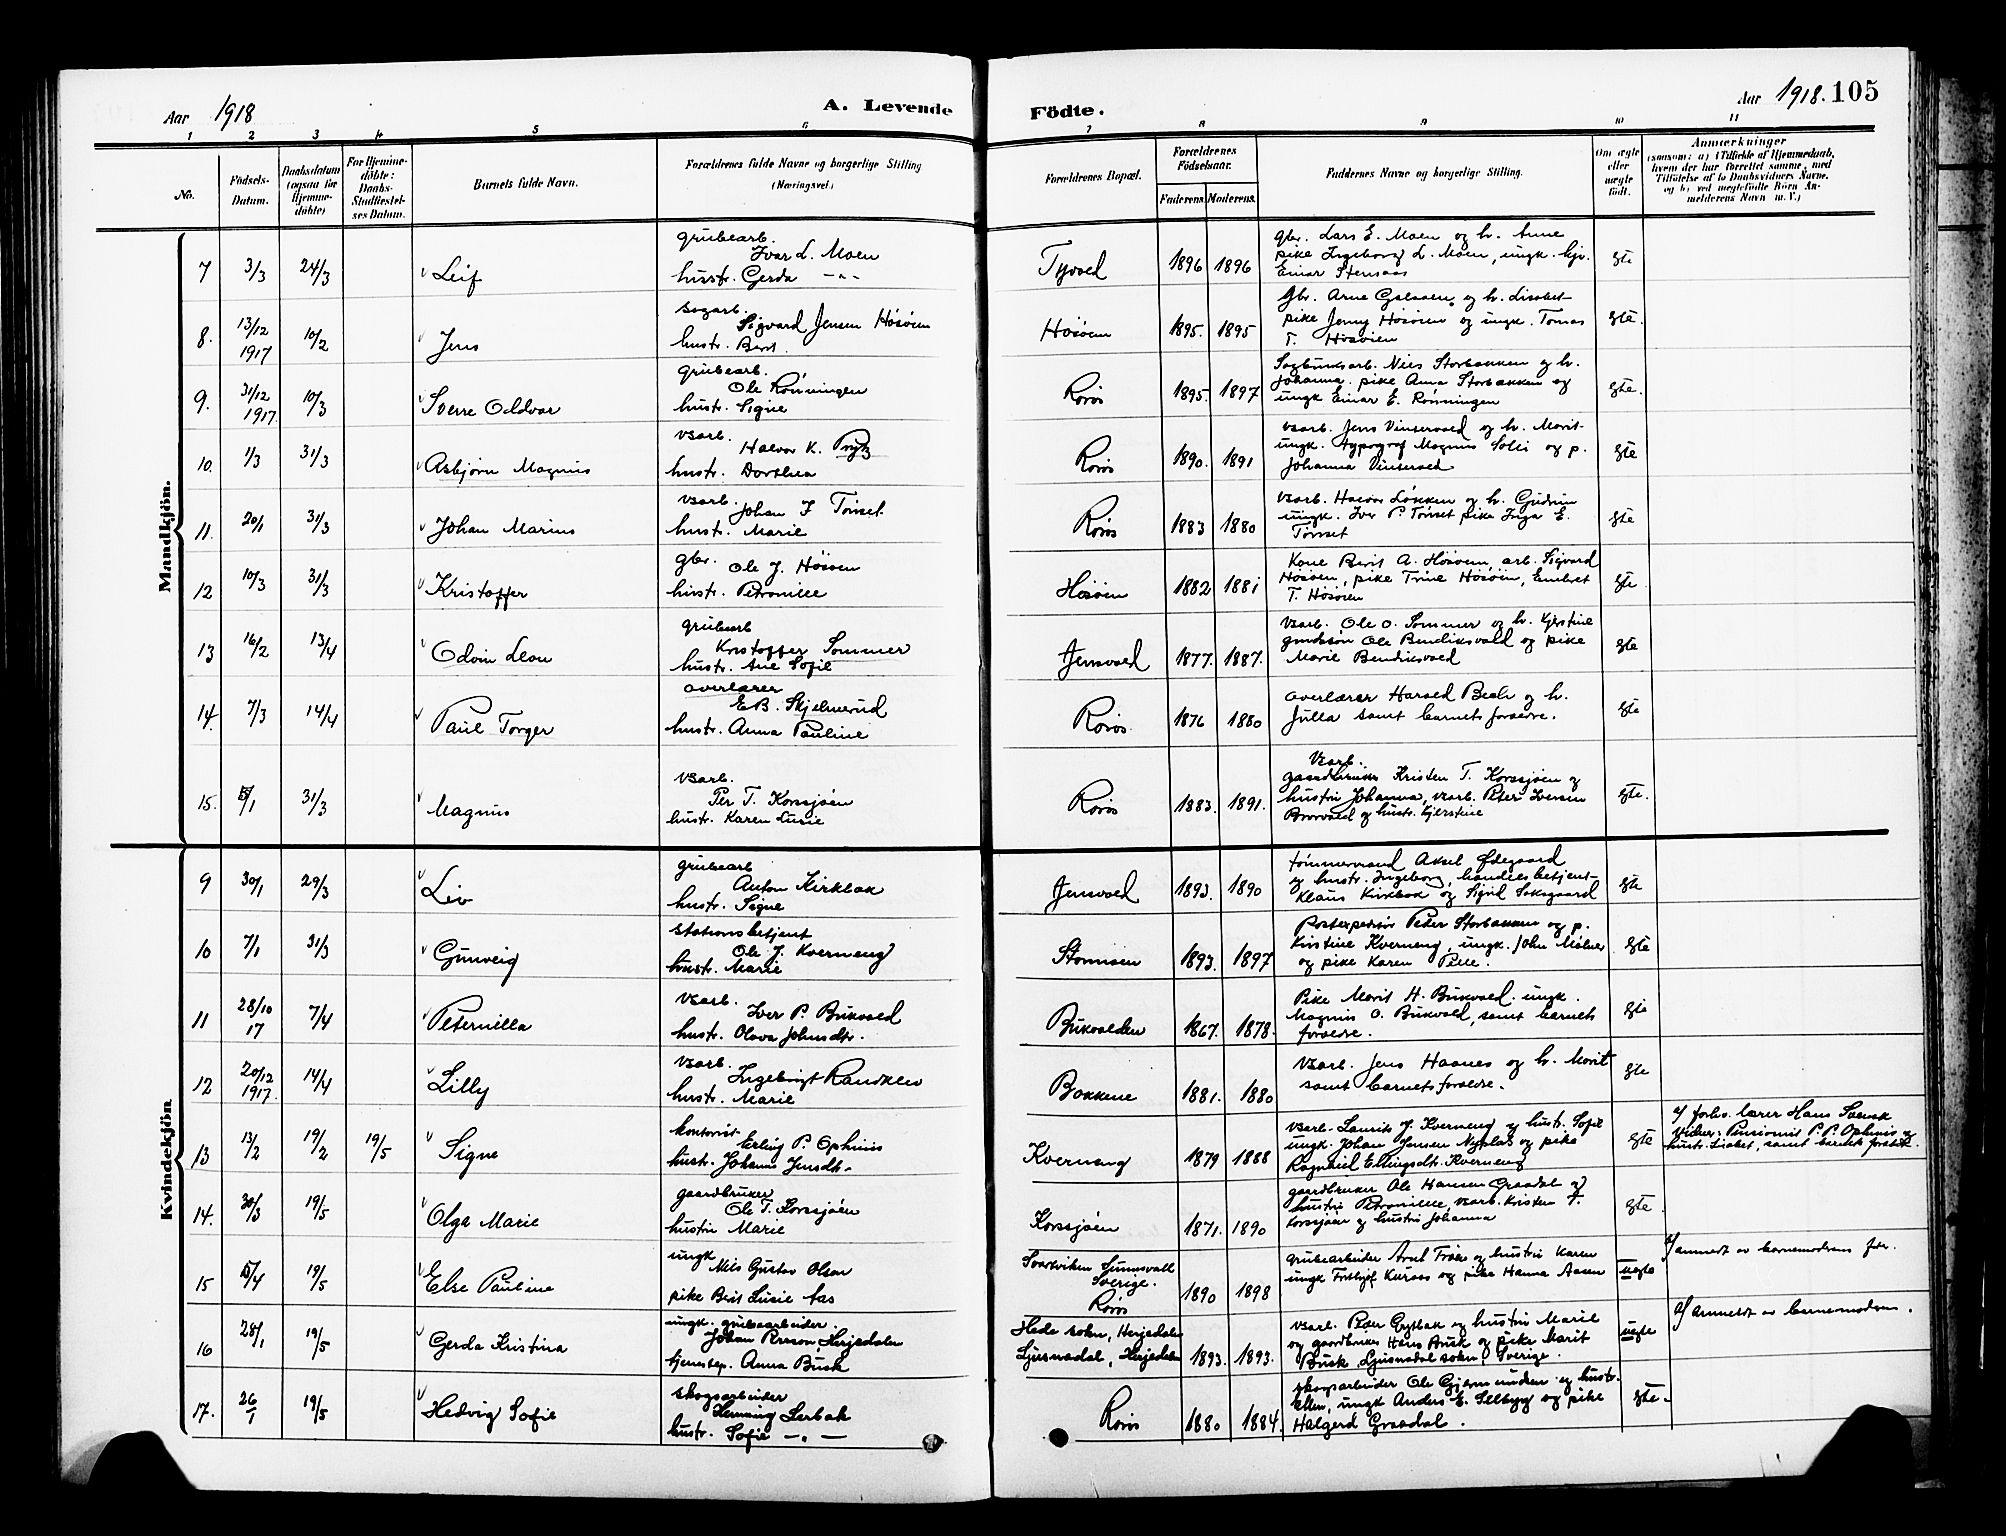 Aar 1918
A. Levende
Födte.
Aar 1918. 105
1 2 3 4 5 6 7 8 9 10 11
No.
Födsels-
Datum.
Daabsdatum
(ogsaa for
Hjemme-
döbte)
For Hjemme-
döbte:
Daabs-
Stadfæstel-
ses Datum.
Barnets fulde Navn.
Forældrenes fulde Navne og borgerlige Stilling
(Næringsvei)
Forældrenes Bopæl.
Forældrenes
Födselsaar.
Faderens Moderens.
Faddernes Navne og borgerlige Stilling.
Om ægte
eller
uægte
födt.
Anmærkninger
(saasom: a) i Tilfælde af Hjemmedaab,
hvem der har forrettet samme, med
Tilföielse af to Daabsvidners Navne,
og b) ved uægtefödte Börn An-
melderens Navn m. V.)
Mandkjön.
7 3/3 24/3 Leif
grubearb.
Ivar L. Moen
hustr. Gerda -"-
Tyvold 1896 1896
gbr. Lars E. Moen og h. Anne
pike Ingeborg L. Moen, ungk.
Einar Stensaas
ekte
8. 13/12 1917 10/2 Jens
sagarb.
Sigvard Jensen Hösöien
hustr. Berit.
Hösöien 1895. 1895
Gbr. Arne Galaaen og h. Lisabet
pike Jenny Hösöien og ungk. Tomas
T. Hösöien
ekte.
9. 31/12 1917. 10/3 Sverre Oddvar
grubearb.
Ole Rönningen
hustr. Signe
Röros 1895. 1897
Sagbruksarb. Niels Storbakken og h.
Johanna. pike Anna Storbakken og
ungk Einar E. Rönningen
ekte.
10. 1/3 31/3 Asbjørn Magnus
vsarb.
Halvor K. Prytz
hustr. Dorthea
Röros 1890. 1891
vsarb. Jens Vintervold og h. Marit
ungk. typograf Magnus Solli og p.
Johanna Vintervold
ekte
11. 20/1 31/3 Johan Marius
vsarb.
Johan J Tönset
hustr. Marie
Röros 1883 1880
vsarb. Halvor Løkken og h. Gudrun
ungk. Iver P. Tönset pike Inga E.
Tönset
ekte
12 10/3 31/3 Kristoffer
gbr.
Ole J. Hösöien
hustr. Petronille
Hösöien 1882 1881
Kone Berit A. Hösöien, arb. Sigvard
Hösöien, pike Trine Hösöien, Embret
T. Hösöien
ekte
13 16/2 13/4 Odvin Leon
grubearb
Kristoffer Sommer
hustr. Ane Sofie
Jensvold 1877. 1887.
vsarb. Ole O. Sommer og h. Kjerstine
grubesön Ole Bendiksvold og pike
Marie Bendiksvold
ekte
14. 7/3 14/4 Paul Torger
overlærer
E B. Skjelmerud
hustr. Anna Pauline
Röros 1876 1880
overlærer Harald Bech og h.
Julla samt barnets forældre.
ekte
15. 5/1 31/3 Magnus
vsarb.
Per T. Korssjøen
hustr. Karen Lusie
Röros 1883. 1891.
vsarb.
gaardbruker Kristen T. Korssjøen og
hustru Johanna, vsarb. Peter Iversen
og hustr. Kjerstine
ekte.
Kvindekjön
9 30/1 29/3 Liv
grubearb
Anton Kirkbak
hustr. Signe
Jensvold 1893. 1890
tømmermand Aksel Ødegaard
og hustr. Ingeborg, handelsbetjent
Klaus Kirkbak og Sigrid Solsgaard
ekte
10 7/1 31/3 Gunveig
stationsbetjent
Ole J. Kverneng
hustr. Marie
Stormoen 1893. 1897
Postexpeditör Peder Storbakken og p.
Kristine Kverneng, ungk. John Mölner
og pike Karen Pelle.
ekte
11 28/10 17 7/4 Peternilla
vsarb.
Iver P. Bukvold
hustr. Olava Johnsdtr.
Bukvolden 1867. 1878.
Pike Marit H. Bukvold. ungk.
Magnus O. Bukvold, samt barnets
forældre.
ekte
12 20/12 1917. 14/4 Lilly
vsarb.
Ingebrigt Randklev
hustr. Marie
Bakkene 1881. 1880
vsarb. Jens Haanes og h. Marit
samt barnets forældre.
ekte
13 13/2 19/2 19/5 Signe
kontorist
Erling P. Ophuus
hustr. Johanna Jensdt.
Kverneng 1879 1888
vsarb. Laurits J. Kverneng og hustr. Sofie
ungk. Johan Jensen Nyplas og pike
Ragnhild Ellingsdtr. Kverneng
ekte
a) forhv. lærer Hans Svensk
vidner: Pensionist P. P. Ophuus og
hustr. Lisbet, samt barnets forældre.
14. 30/3 19/5 Olga Marie
gaardbruker
Ole T. Korssjøen
hustru Marie
Korssjøen 1871. 1890
gaardbruker Ole Hansen Graadal og
hustru Petronille, vsarb. Kristen T.
Korssjøen og hustru Johanna
ekte.
15 5/4 19/5 Else Pauline
ungk
Nils Gustav Olson
pike Berit Lusie Aas
Svartviken Sunnsvall
Sverige.
Röros
1890 1898
grubearbeider Arnt Tröen og hustru Karen
ungk Fridtjof Kuraas og pike Hanna Aasen
uegte
b) anmeldt av barnemodrens far.
16 28/1 19/5 Gerda Kristina
ungk. grubearbeider.
Johan Persson, Herjedalen
tjenestep. Anna Busk
Hede sokn, Herjedalen
Ljusnedal, Herjedalen 1893. 1893.
vsarb. Peder Gytbak og hustru Marie
og gaardbruker Hans Busk og pike Marit
Busk Ljusnedal sokn, Sverige.
uegte
b) anmeldt av barnemodren.
17. 26/1 19/5 Hedvig Sofie
skogsarbeider
Henning Lerbak
hustr. Sofie -"-
Röros 1880 1884.
skogsarbeider Ole Gjermundsen og hustr.
Ellen, ungk Anders E. Selbygg og pike
Halgerd Graadal.
ekte.